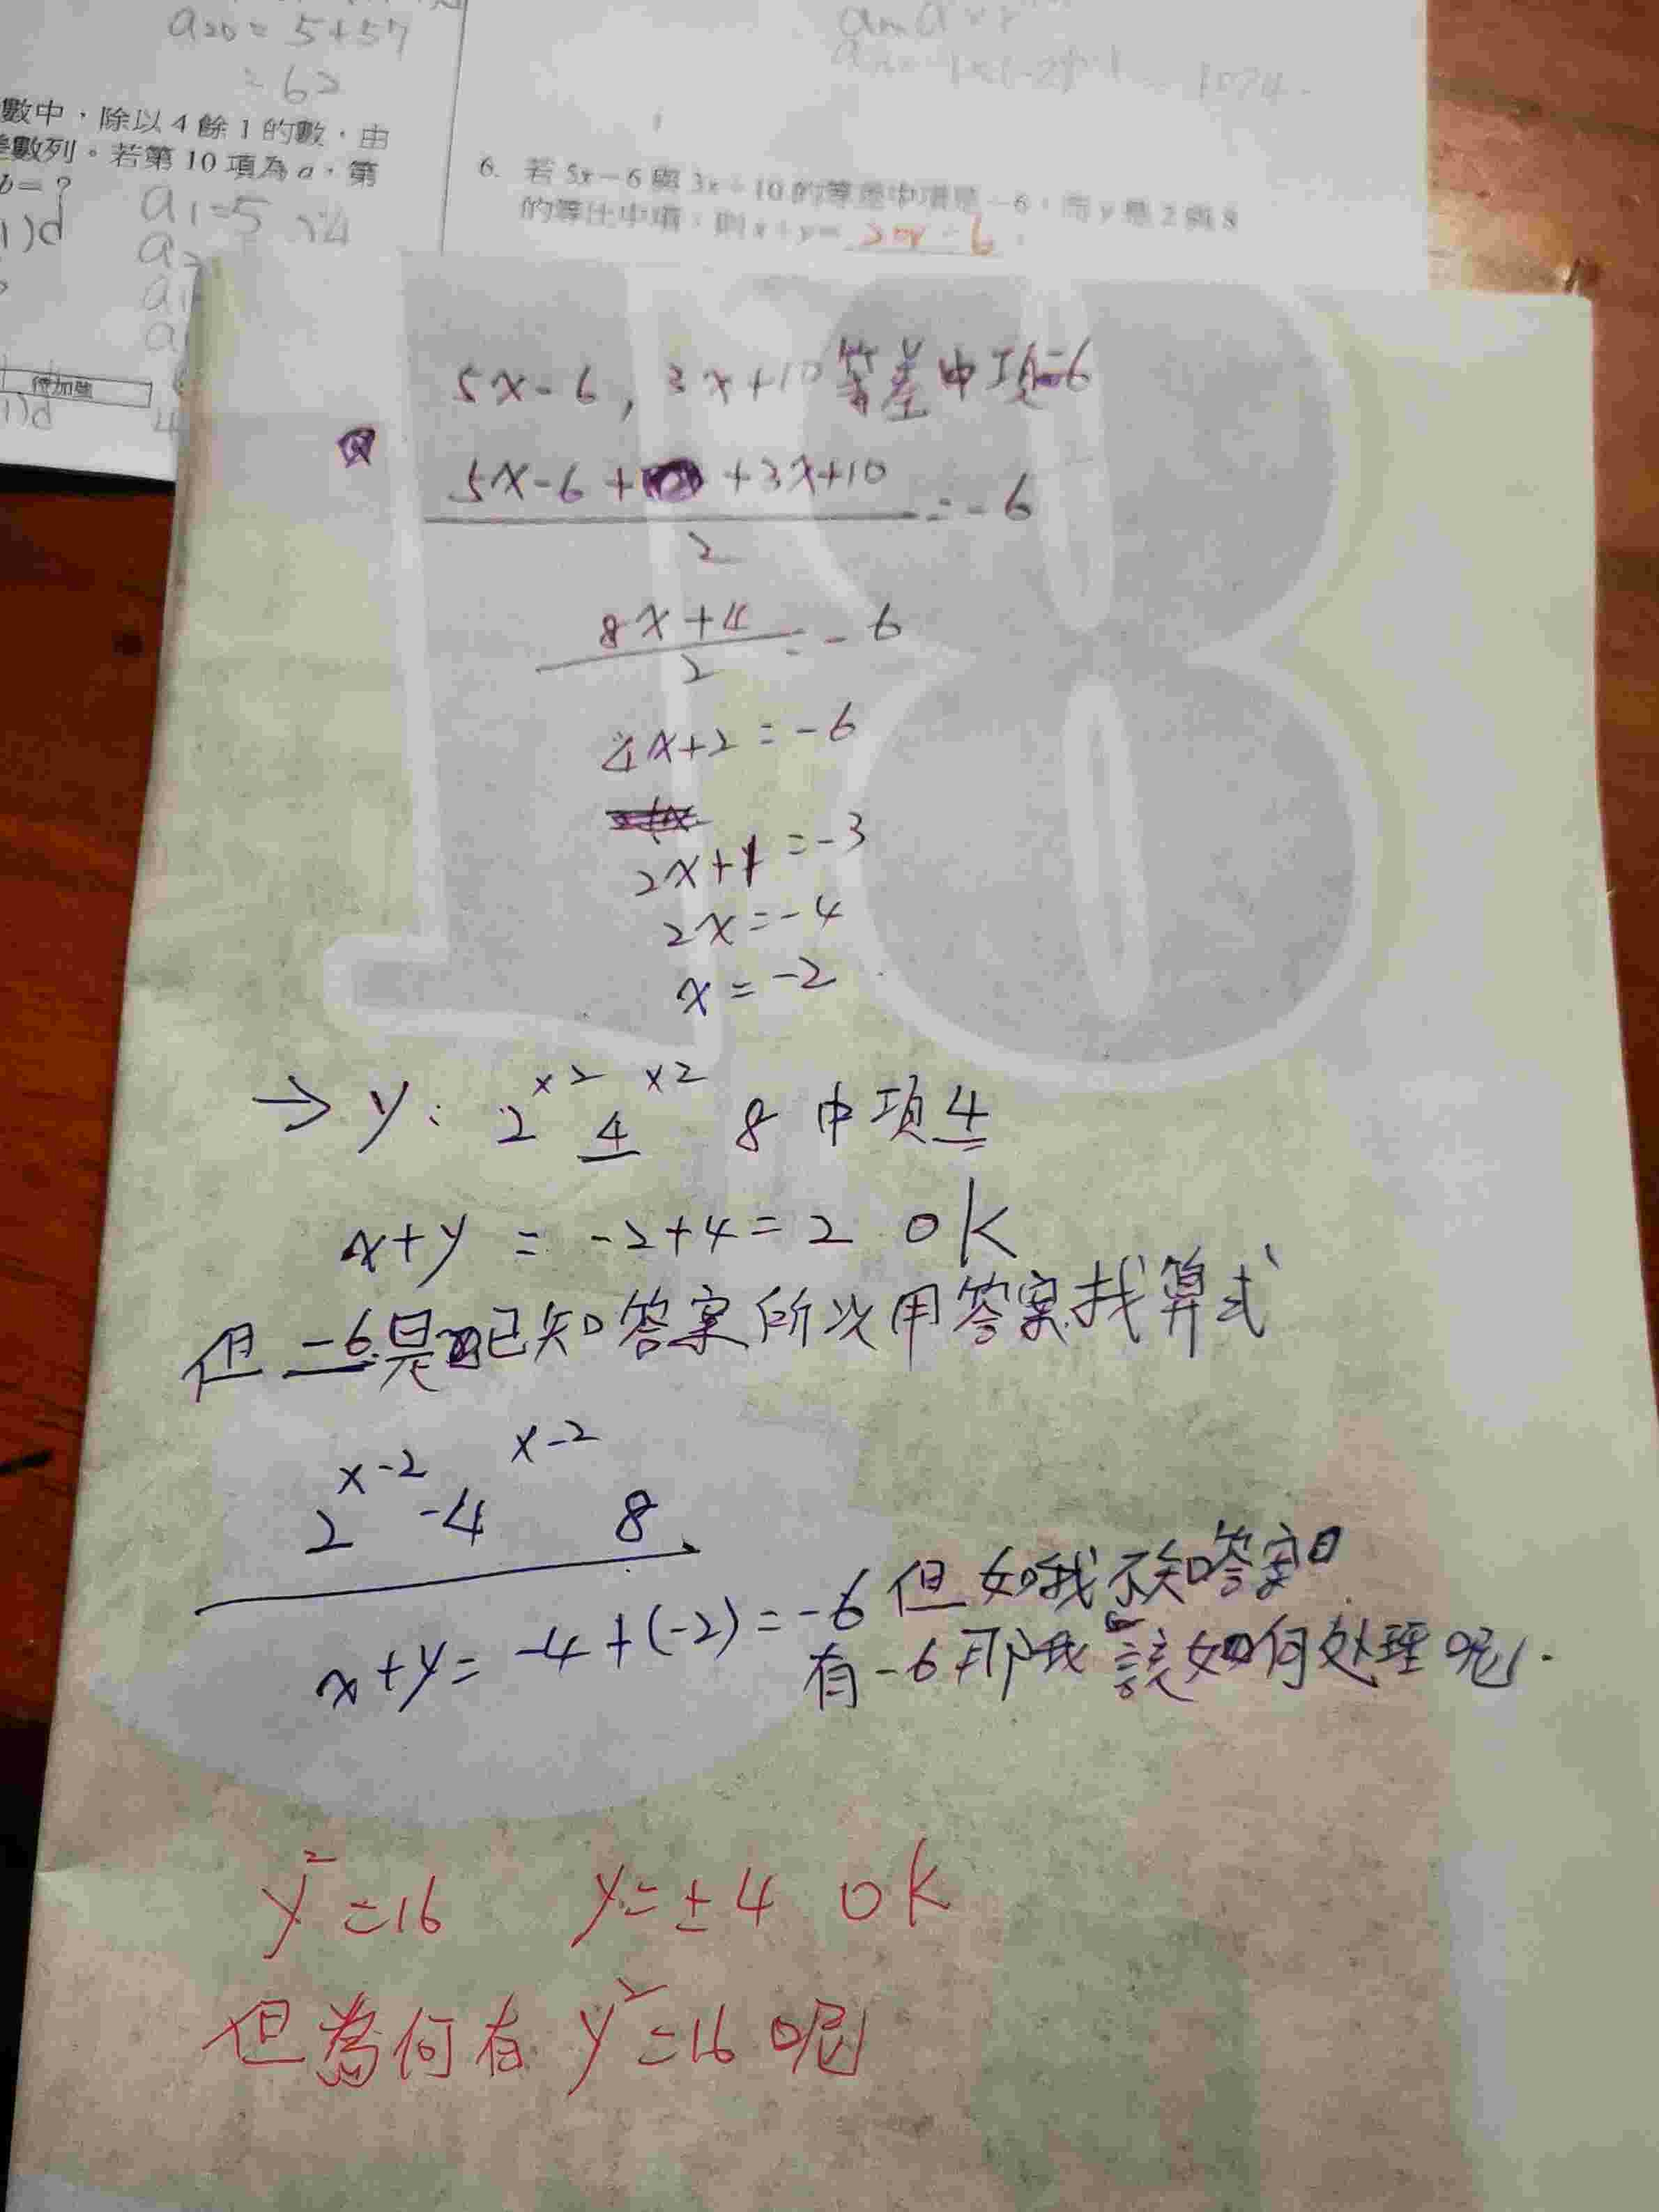 a20 = 5+57
= 62
數中，除以4餘1的數，由
數列。若第10項為a，第
b=?
1)d
a1=5
6. 若5x-6與3x+10的等差中項是-6，而y是2與8
的等比中項，則x+y= 2or-6。
待加強
1)d
5x-6, 3x+10等差中項=-6
5x-6+ +3x+10
2
=-6
8x+4
2
=-6
4x+2=-6
2x+1=-3
2x=-4
x=-2
→ y: 2 ×2 4 ×2 8 中項4
x+y = -2+4=2 OK
但 -6是已知答案所以用答案找算式
x-2 x-2
2 -4 8
x+y=-4+(-2)=-6 但如我不知答案
有-6那我該如何处理呢.
y²=16 y=±4 OK
但為何有y²=16呢